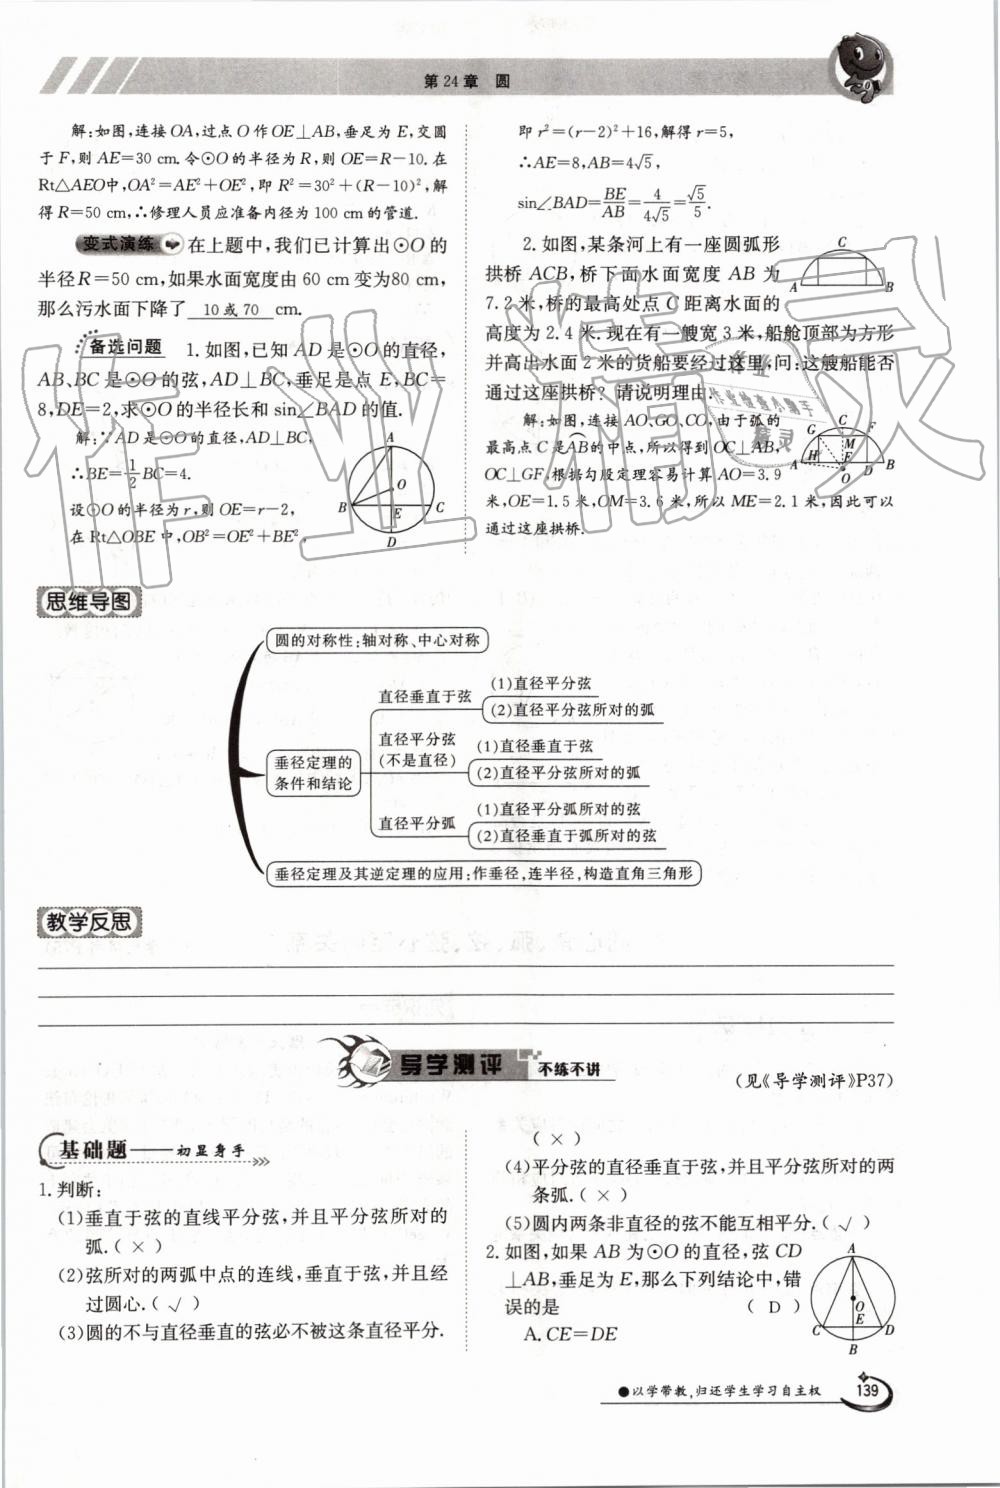 第24章 圆
解:如图,连接OA,过点O作OE⊥AB,垂足为E,交圆
于F,则AE=30 cm.令⊙O的半径为R,则OE=R-10.在
Rt△AEO中,OA²=AE²+OE²,即R²=30²+(R-10)²,解
得R=50 cm,∴修理人员应准备内径为100 cm的管道.
变式演练 在上题中,我们已计算出⊙O的
半径R=50 cm,如果水面宽度由60 cm变为80 cm,
那么污水面下降了 10或70 cm.
备选问题 1.如图,已知AD是⊙O的直径,
AB、BC是⊙O的弦,AD⊥BC,垂足是点E,BC=
8,DE=2,求⊙O的半径长和sin∠BAD的值.
解:∵AD是⊙O的直径,AD⊥BC,
∴BE=1/2BC=4.
设⊙O的半径为r,则OE=r-2,
在Rt△OBE中,OB²=OE²+BE²,
A
O
B
E
C
D
即r²=(r-2)²+16,解得r=5,
∴AE=8,AB=4√5,
sin∠BAD=BE/AB=4/4√5=√5/5.
2.如图,某条河上有一座圆弧形
拱桥ACB,桥下面水面宽度AB为
7.2米,桥的最高处点C距离水面的
高度为2.4米.现在有一艘宽3米,船舱顶部为方形
并高出水面2米的货船要经过这里,问:这艘船能否
通过这座拱桥?请说明理由.
C
A
B
解:如图,连接AO、GO、CO,由于弧的
最高点C是AB的中点,所以得到OC⊥AB,
OC⊥GF,根据勾股定理容易计算AO=3.9
米,OE=1.5米,OM=3.6米,所以ME=2.1米,因此可以
通过这座拱桥.
G
C
F
M
H
E
A
D
B
O
作业精灵
作业检查小帮手
思维导图
圆的对称性:轴对称、中心对称
垂径定理的
条件和结论
直径垂直于弦
(1)直径平分弦
(2)直径平分弦所对的弧
直径平分弦
(不是直径)
(1)直径垂直于弦
(2)直径平分弦所对的弧
直径平分弧
(1)直径平分弧所对的弦
(2)直径垂直于弧所对的弦
垂径定理及其逆定理的应用:作垂径,连半径,构造直角三角形
教学反思
导学测评 不练不讲
(见《导学测评》P37)
基础题——初显身手
1.判断:
(1)垂直于弦的直线平分弦,并且平分弦所对的
弧.(×)
(2)弦所对的两弧中点的连线,垂直于弦,并且经
过圆心.(√)
(3)圆的不与直径垂直的弦必不被这条直径平分.
(×)
(4)平分弦的直径垂直于弦,并且平分弦所对的两
条弧.(×)
(5)圆内两条非直径的弦不能互相平分.(√)
2.如图,如果AB为⊙O的直径,弦CD
⊥AB,垂足为E,那么下列结论中,错
误的是 (D)
A.CE=DE
A
O
E
C
D
B
●以学带教,归还学生学习自主权
139